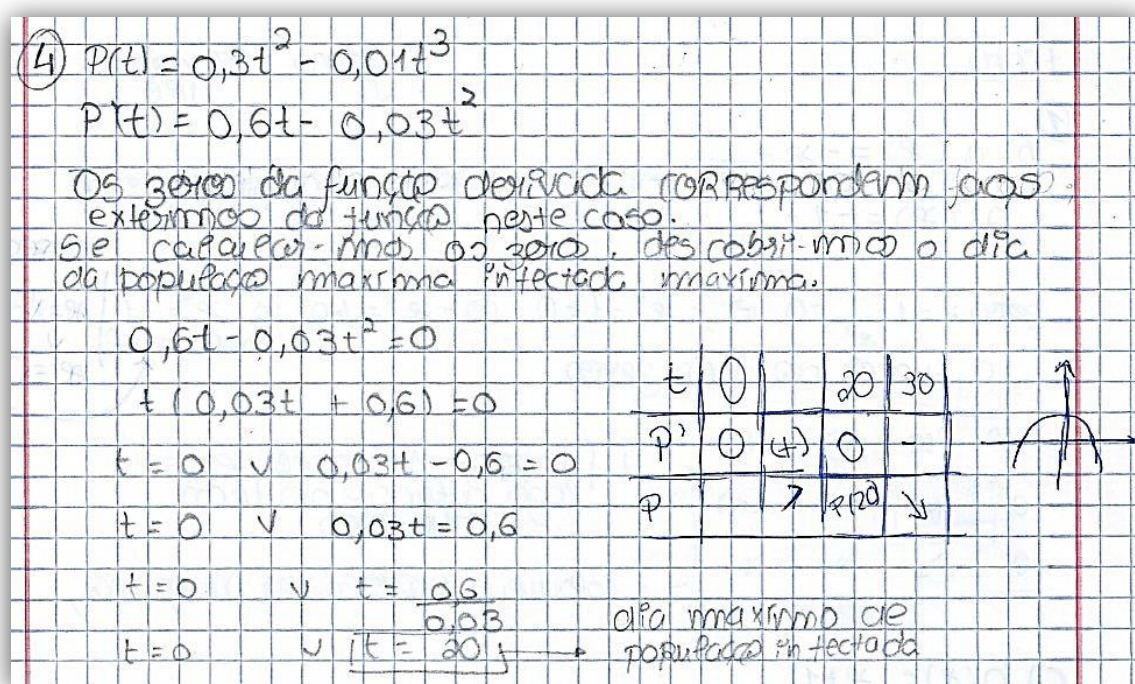 4 P(t) = 0,3t² - 0,01t³
P'(t) = 0,6t - 0,03t²
Os zeros da função derivada correspondem aos
extermos da função neste caso.
Se calcular-mos os zeros, descobri-mos o dia
da população maxima infectada maxima.
0,6t - 0,03t² = 0
t (0,03t + 0,6) = 0
t = 0 ∨ 0,03t - 0,6 = 0
t = 0 ∨ 0,03t = 0,6
t = 0 ∨ t = 0,6/0,03
t = 0 ∨ t = 20 → dia maximo de
população infectada
t 0 20 30
P' 0 (+) 0 -
P ↗ P(20) ↘